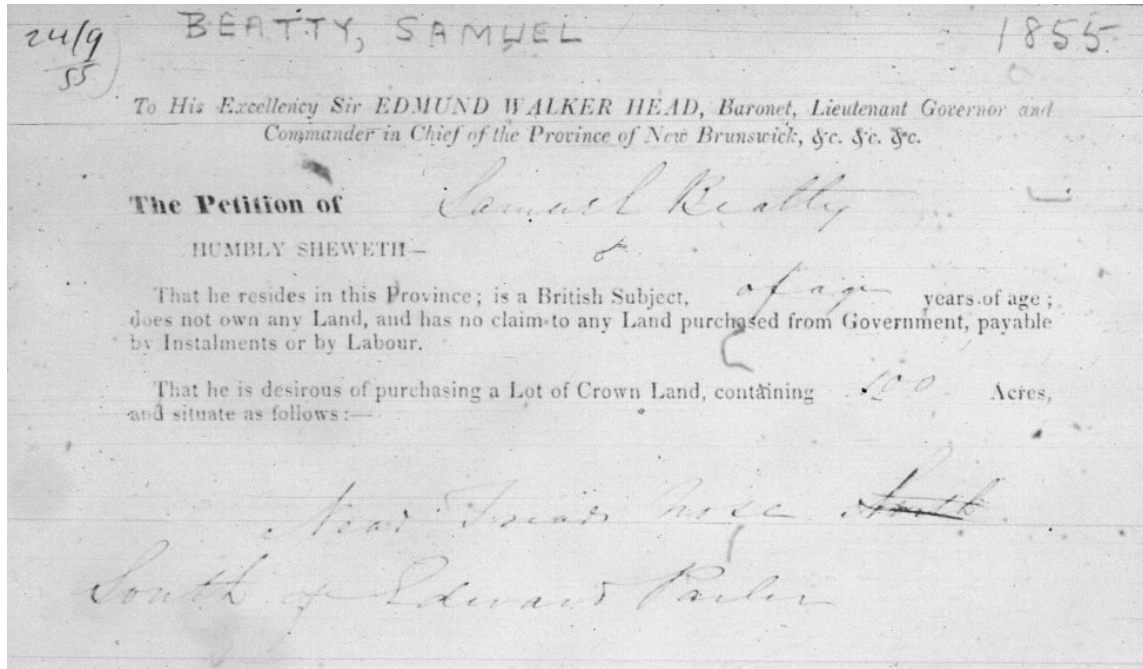 24/9
55
BEATTY, SAMUEL
1855
To His Excellency Sir EDMUND WALKER HEAD, Baronet, Lieutenant Governor and
Commander in Chief of the Province of New Brunswick, &c. &c. &c.
The Petition of Samuel Beatty
HUMBLY SHEWETH—
That he resides in this Province; is a British Subject, of age years of age;
does not own any Land, and has no claim to any Land purchased from Government, payable
by Instalments or by Labour.
That he is desirous of purchasing a Lot of Crown Land, containing 100 Acres,
and situate as follows:—
Near Friars Nose South
South of Edward